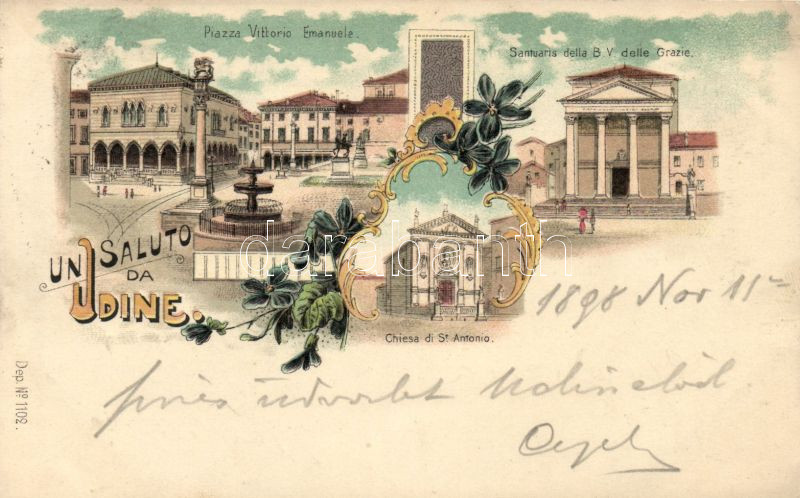 Piazza Vittorio Emanuele.
Santuaris della B. V. delle Grazie.
UN SALUTO
DA
UDINE.
Chiesa di St Antonio.
1898 Nov 11
üdvözlet
Dep. No 1102.
darabanth